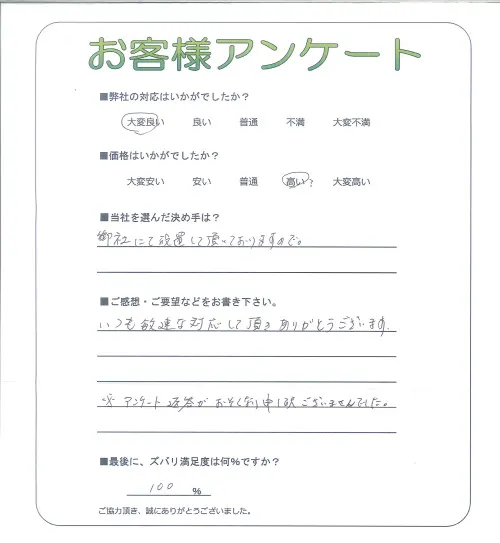 お客様アンケート
■弊社の対応はいかがでしたか？
大変良い 良い 普通 不満 大変不満
■価格はいかがでしたか？
大変安い 安い 普通 高い? 大変高い
■当社を選んだ決め手は？
御社にて設置して頂いておりますので。
■ご感想・ご要望などをお書き下さい。
いつも敏速な対応して頂きありがとうございます.
※ アンケート返答がおそくなり申し訳ございませんでした。
■最後に、ズバリ満足度は何%ですか？
100 %
ご協力頂き、誠にありがとうございました。